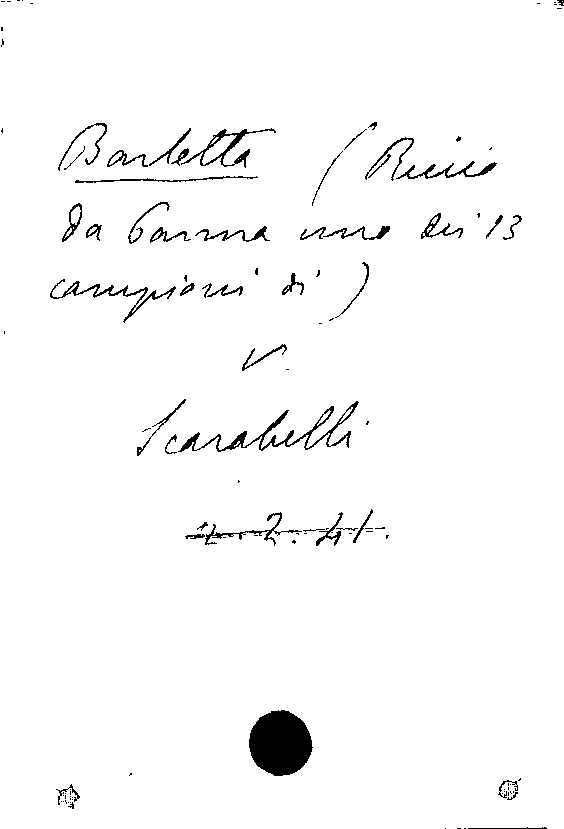 Barletta (Riccio
da Parma uno dei 13
campioni di)
v.
Scarabelli
4.2.41.